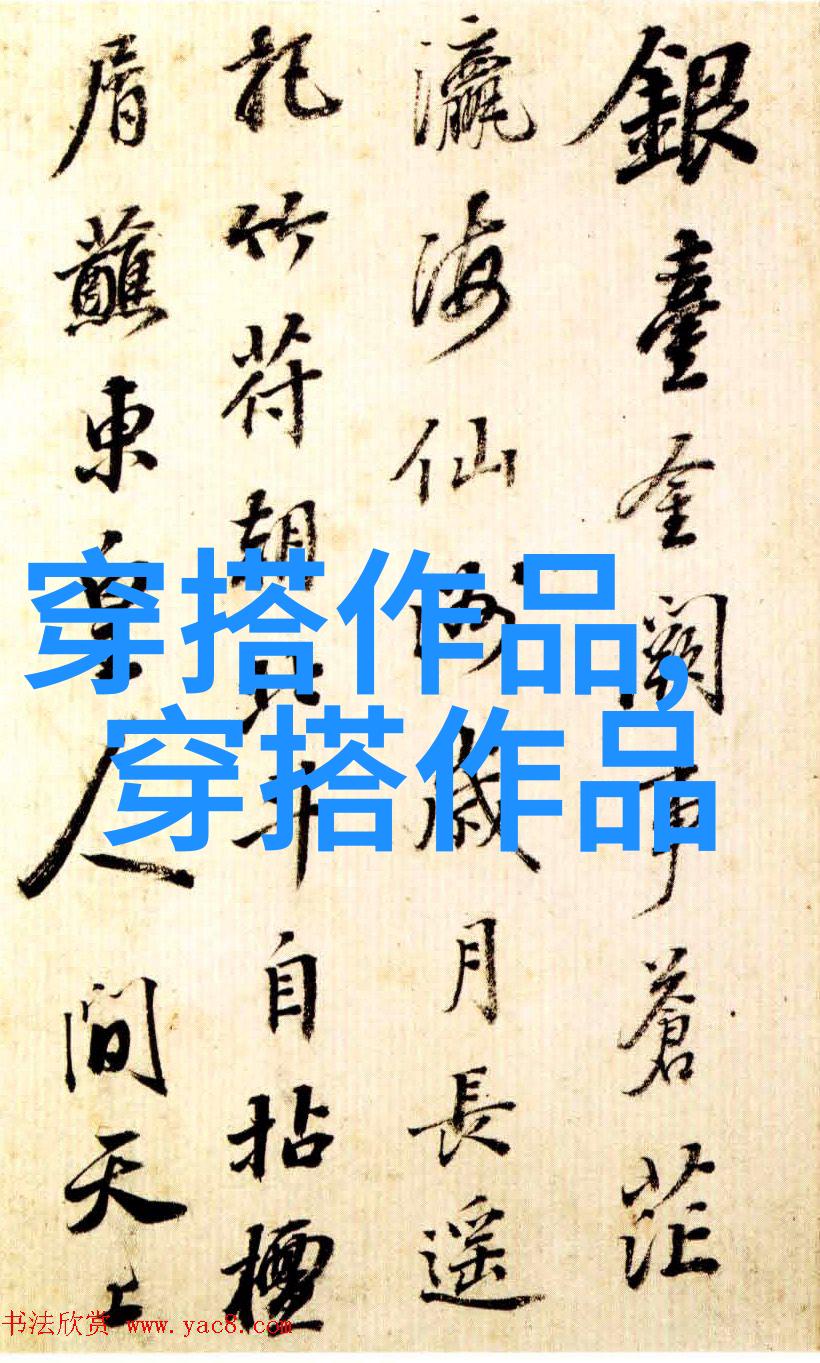 銀臺金闕事蒼茫
瀛海仙
歲月長遥
記竹符朝
自拈檀
屑蘸東皇人間天上
穿搭作品,
穿搭作品
书法欣赏 www.yac8.com